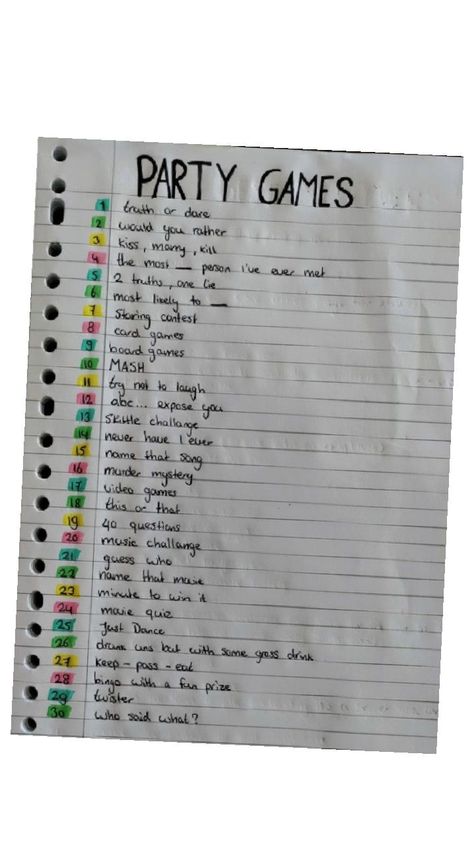 PARTY GAMES
1 truth or dare
2 would you rather
3 kiss, marry, kill
4 the most __ person I've ever met
5 2 truths, one lie
6 most likely to __
7 Staring contest
8 card games
9 board games
10 MASH
11 try not to laugh
12 abc... expose you
13 Skittle challange
14 never have I ever
15 name that song
16 murder mystery
17 video games
18 this or that
19 40 questions
20 music challange
21 guess who
22 name that movie
23 minute to win it
24 movie quiz
25 Just Dance
26 drunk uns but with some gross drink
27 keep - pass - eat
28 bingo with a fun prize
29 twister
30 who said what?